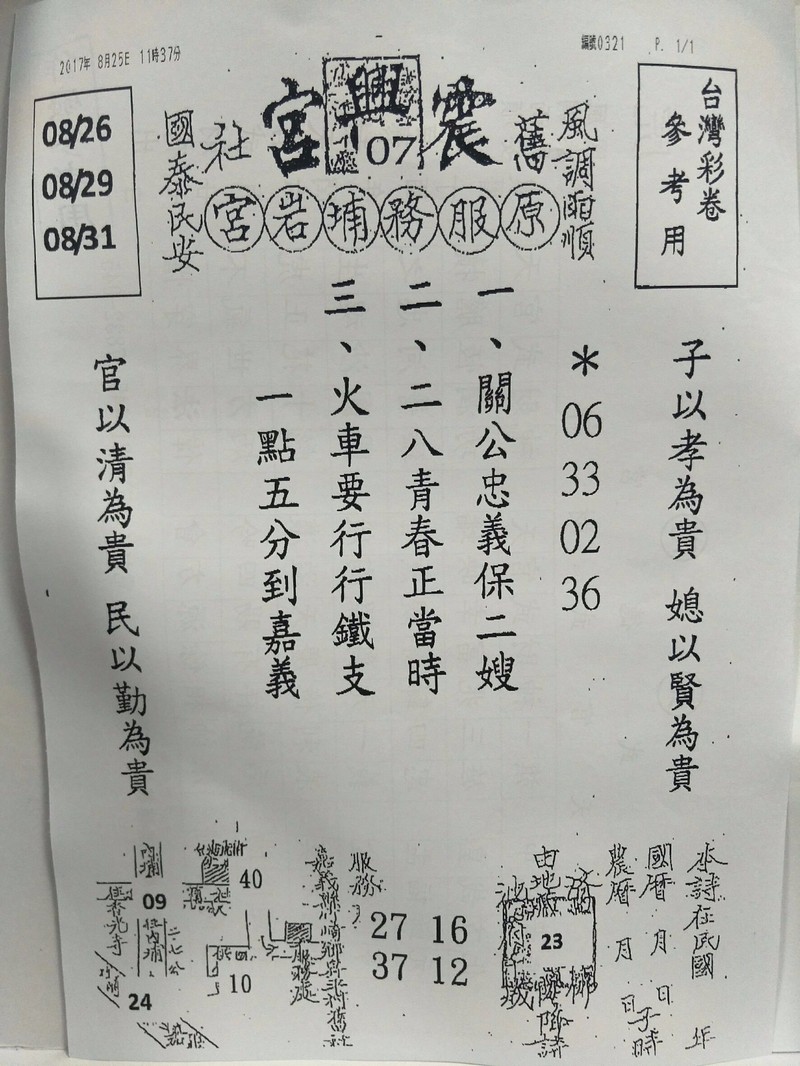 2017年 8月25日 11時37分
編號0321 P. 1/1
台灣彩卷
參考用
08/26
08/29
08/31
震興宮
07
舊社
風調雨順
國泰民安
原服務埔岩宮
子以孝為貴 媳以賢為貴
＊06 33 02 36
一、關公忠義保二嫂
二、二八青春正當時
三、火車要行行鐵支
一點五分到嘉義
官以清為貴 民以勤為貴
本詩在民國 年
國曆 月 日
農曆 月 日子時
23
服務
27 16
37 12
40
10
內埔
09
24